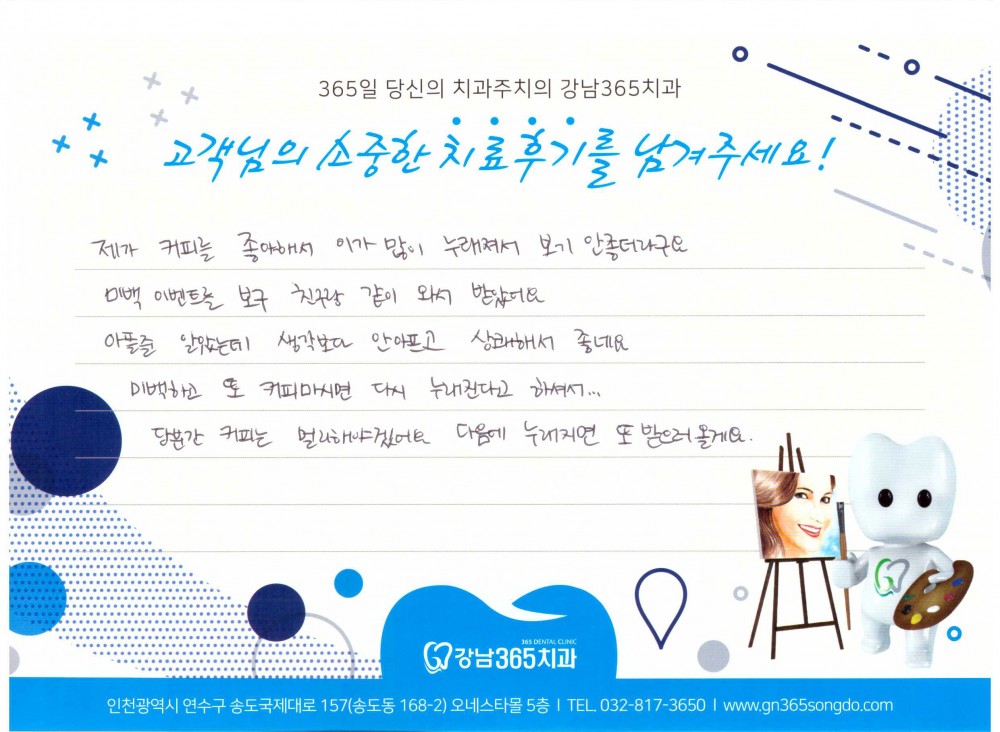 365일 당신의 치과주치의 강남365치과
고객님의 소중한 치료후기를 남겨주세요!
제가 커피를 좋아해서 이가 많이 누래져서 보기 안좋더라구요
미백 이벤트를 보구 친구랑 같이 와서 받았어요
아플줄 알았는데 생각보다 안아프고 상쾌해서 좋네요
미백하고 또 커피마시면 다시 누래진다고 하셔서...
당분간 커피는 멀리해야겠어요 다음에 누래지면 또 받으러 올게요.
365 DENTAL CLINIC
강남365치과
인천광역시 연수구 송도국제대로 157(송도동 168-2) 오네스타몰 5층 I TEL. 032-817-3650 I www.gn365songdo.com